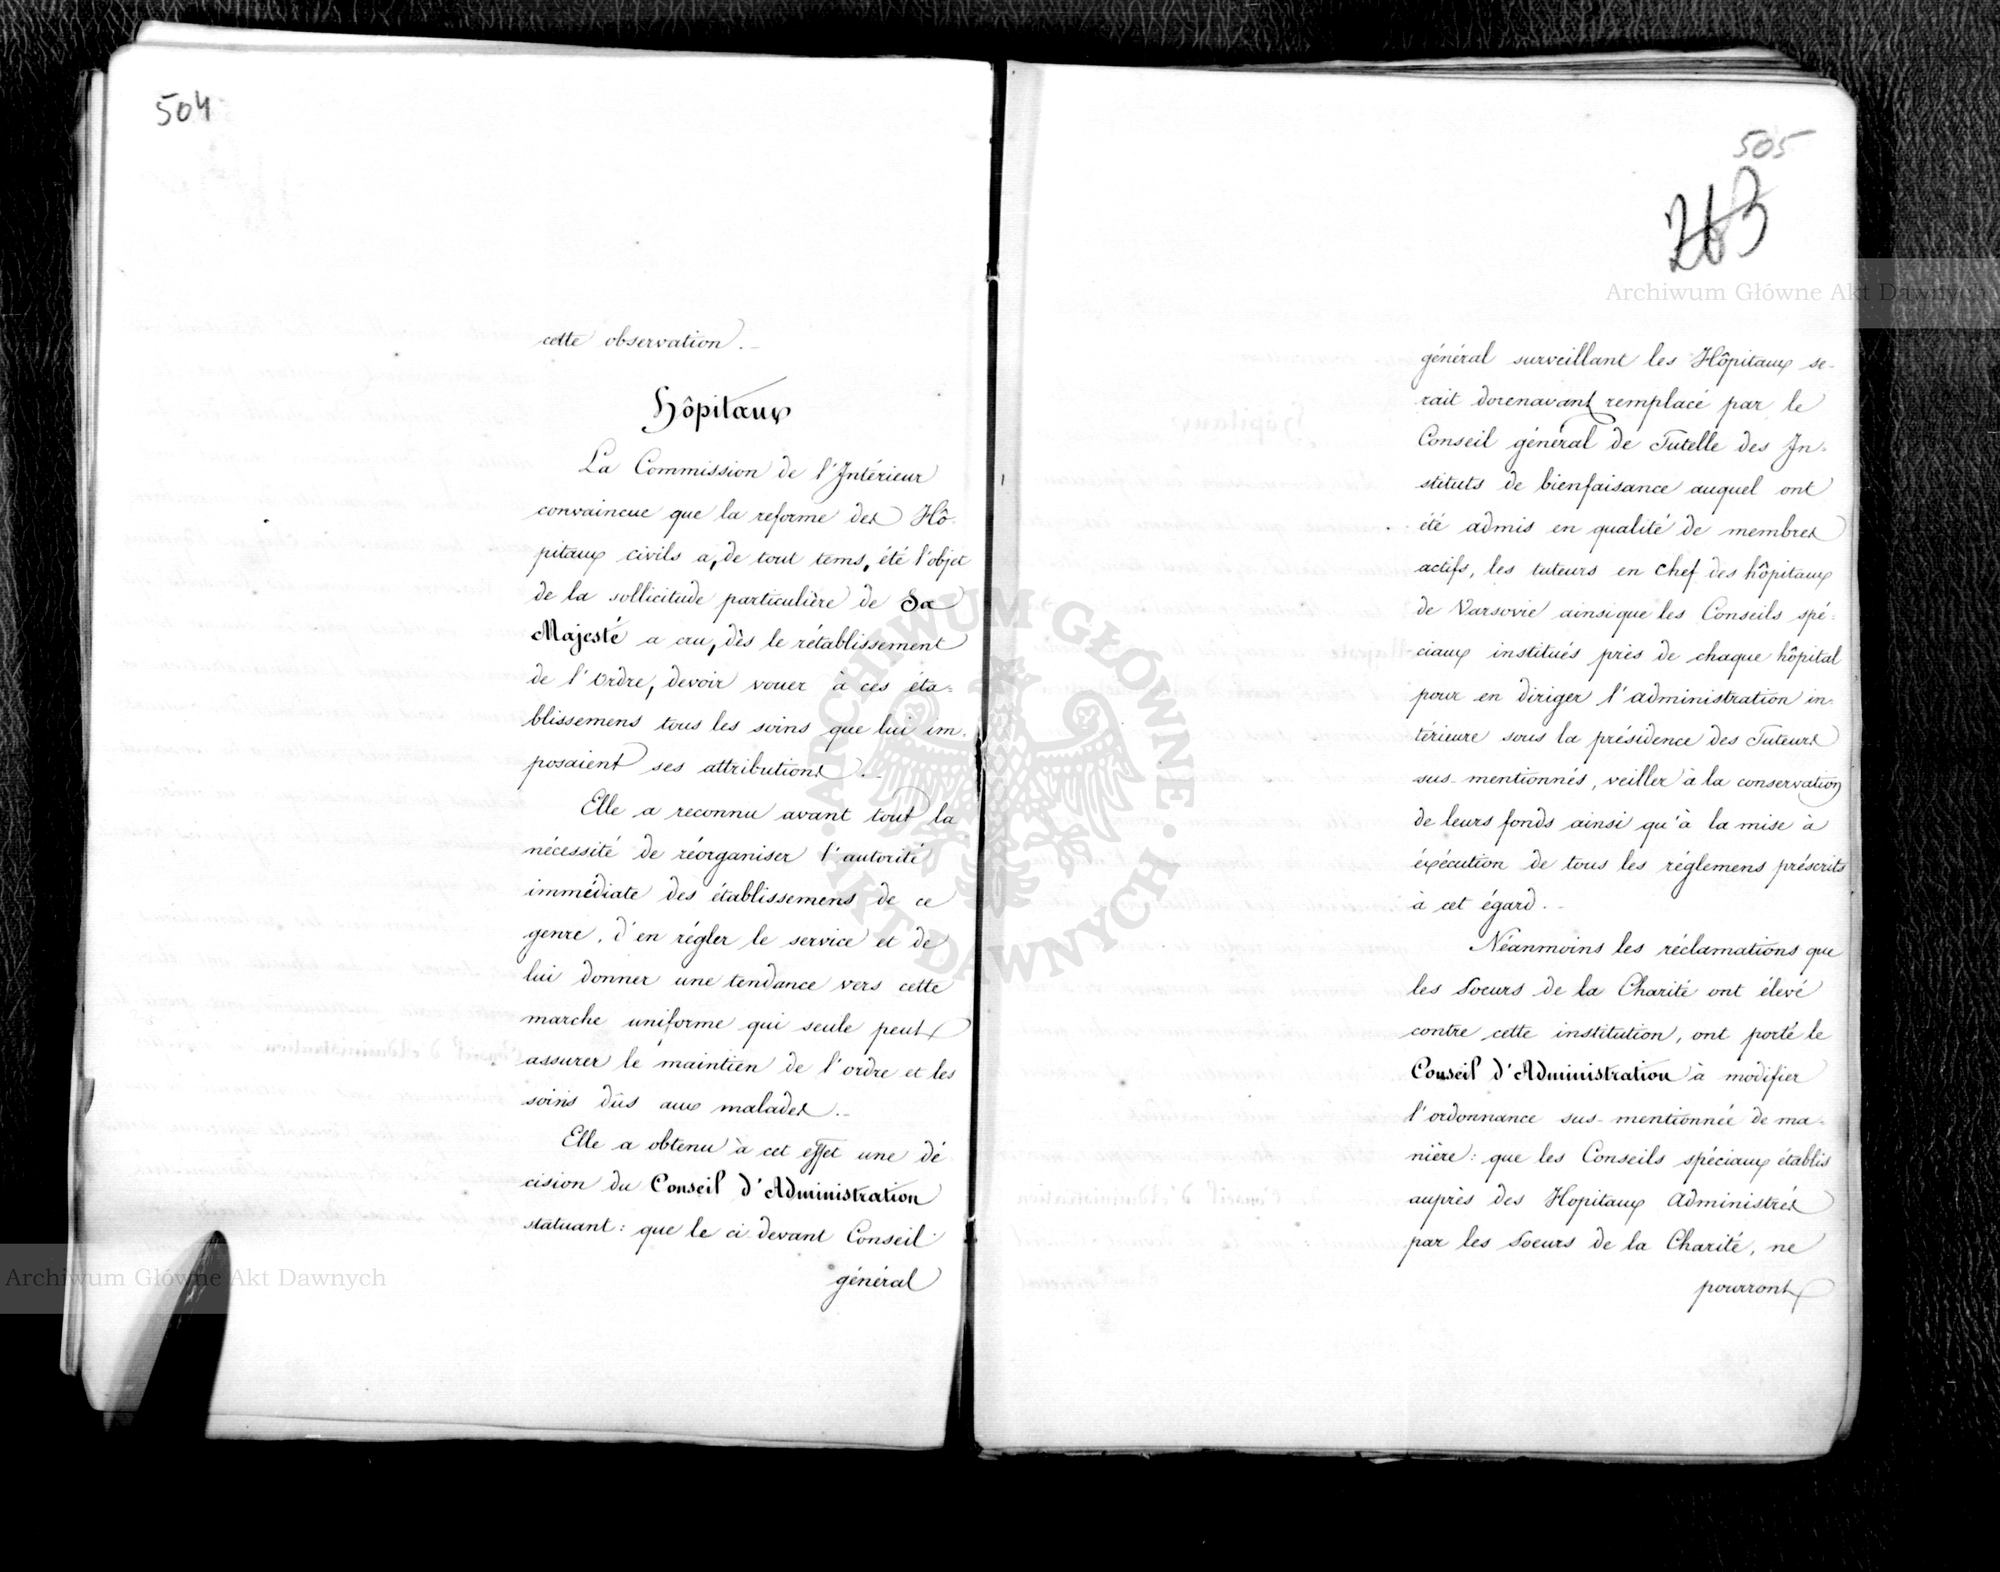 504
cette observation.
Hôpitaux
La Commission de l'Intérieur
convaincue que la reforme des Hô-
pitaux civils a, de tout tems, été l'objet
de la sollicitude particulière de Sa
Majesté a cru, dès le rétablissement
de l'Ordre, devoir vouer à ces éta-
blissemens tous les soins que lui im-
posaient ses attributions.
Elle a reconnu avant tout la
nécessité de réorganiser l'autorité
immédiate des établissemens de ce
genre, d'en régler le service et de
lui donner une tendance vers cette
marche uniforme qui seule peut
assurer le maintien de l'ordre et les
soins dûs aux malades.
Elle a obtenu à cet effet une dé
cision du Conseil d'Administration
statuant: que le ci devant Conseil
général
505
263
général surveillant les Hôpitaux se-
rait dorenavant remplacé par le
Conseil général de Tutelle des In-
stituts de bienfaisance auquel ont
été admis en qualité de membres
actifs, les tuteurs en chef des hôpitaux
de Varsovie ainsi que les Conseils spé-
ciaux institués près de chaque hôpital
pour en diriger l'administration in-
térieure sous la présidence des Tuteurs
sus-mentionnés, veiller à la conservation
de leurs fonds ainsi qu'à la mise à
éxécution de tous les réglemens préscrits
à cet égard.
Néanmoins les réclamations que
les Soeurs de la Charité ont élevé
contre cette institution, ont porté le
Conseil d'Administration à modifier
l'ordonnance sus-mentionnée de ma-
nière: que les Conseils spéciaux établis
auprès des Hopitaux Administrés
par les Soeurs de la Charité, ne
pourront
Archiwum Główne Akt Dawnych
Archiwum Główne Akt Dawnych
ARCHIWUM GŁÓWNE
AKT DAWNYCH